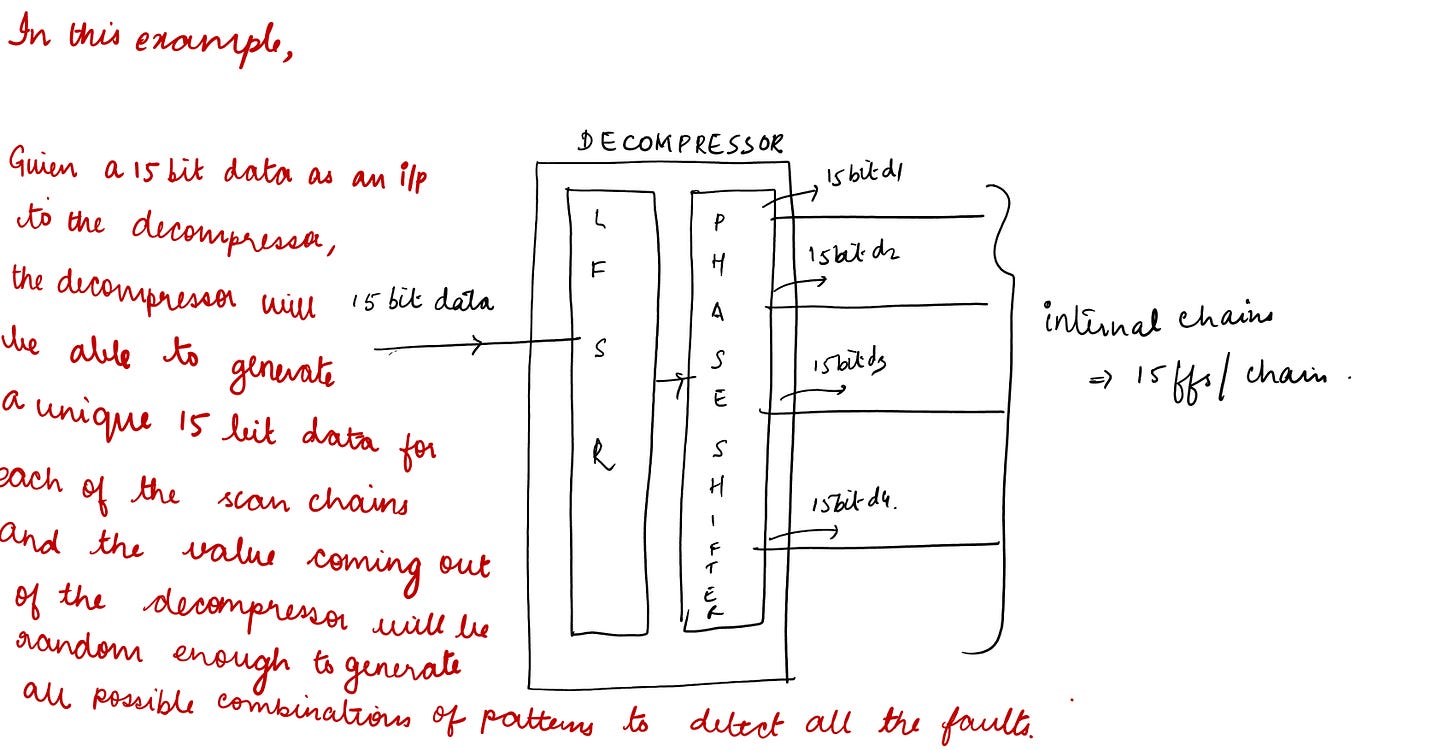 In this example,
Given a 15 bit data as an i/p
to the decompressor,
the decompressor will
be able to generate
a unique 15 bit data for
each of the scan chains
and the value coming out
of the decompressor will be
random enough to generate
all possible combinations of patterns to detect all the faults.
DECOMPRESSOR
15 bit data
L
F
S
R
P
H
A
S
E
S
H
I
F
T
E
R
15 bit d1
15 bit d2
15 bit d3
15 bit d4.
internal chains
=> 15 ffs/ chain.